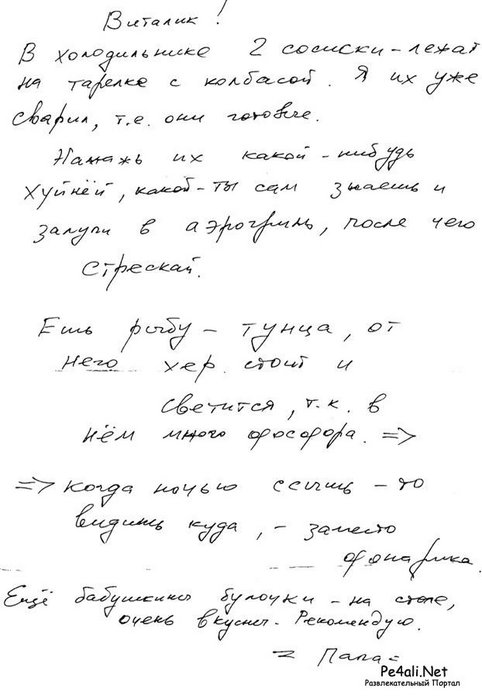 Виталик!
В холодильнике 2 сосиски – лежат
на тарелке с колбасой. Я их уже
сварил, т.е. они готовые.
Намажь их какой-нибудь
хуйнёй, какой-ты сам знаешь и
залупи в аэрогриль, после чего
стрескай.
Ешь рыбу – тунца, от
него хер стоит и
светится, т.к. в
нём много фосфора. =>
=> Когда ночью ссышь – то
видишь куда, – заместо
фонарика.
Ещё бабушкины булочки – на столе,
очень вкусны. Рекомендую.
= Папа =
Pe4ali.Net
Развлекательный Портал